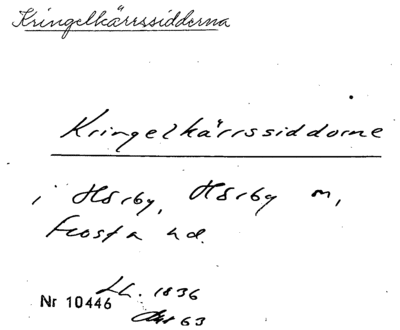 Kringelkärrssidderna
Kringelkärrssiddorne
i Hörby, Hörby sn,
Frosta hd.
Lh. 1836
Nr 10446
63